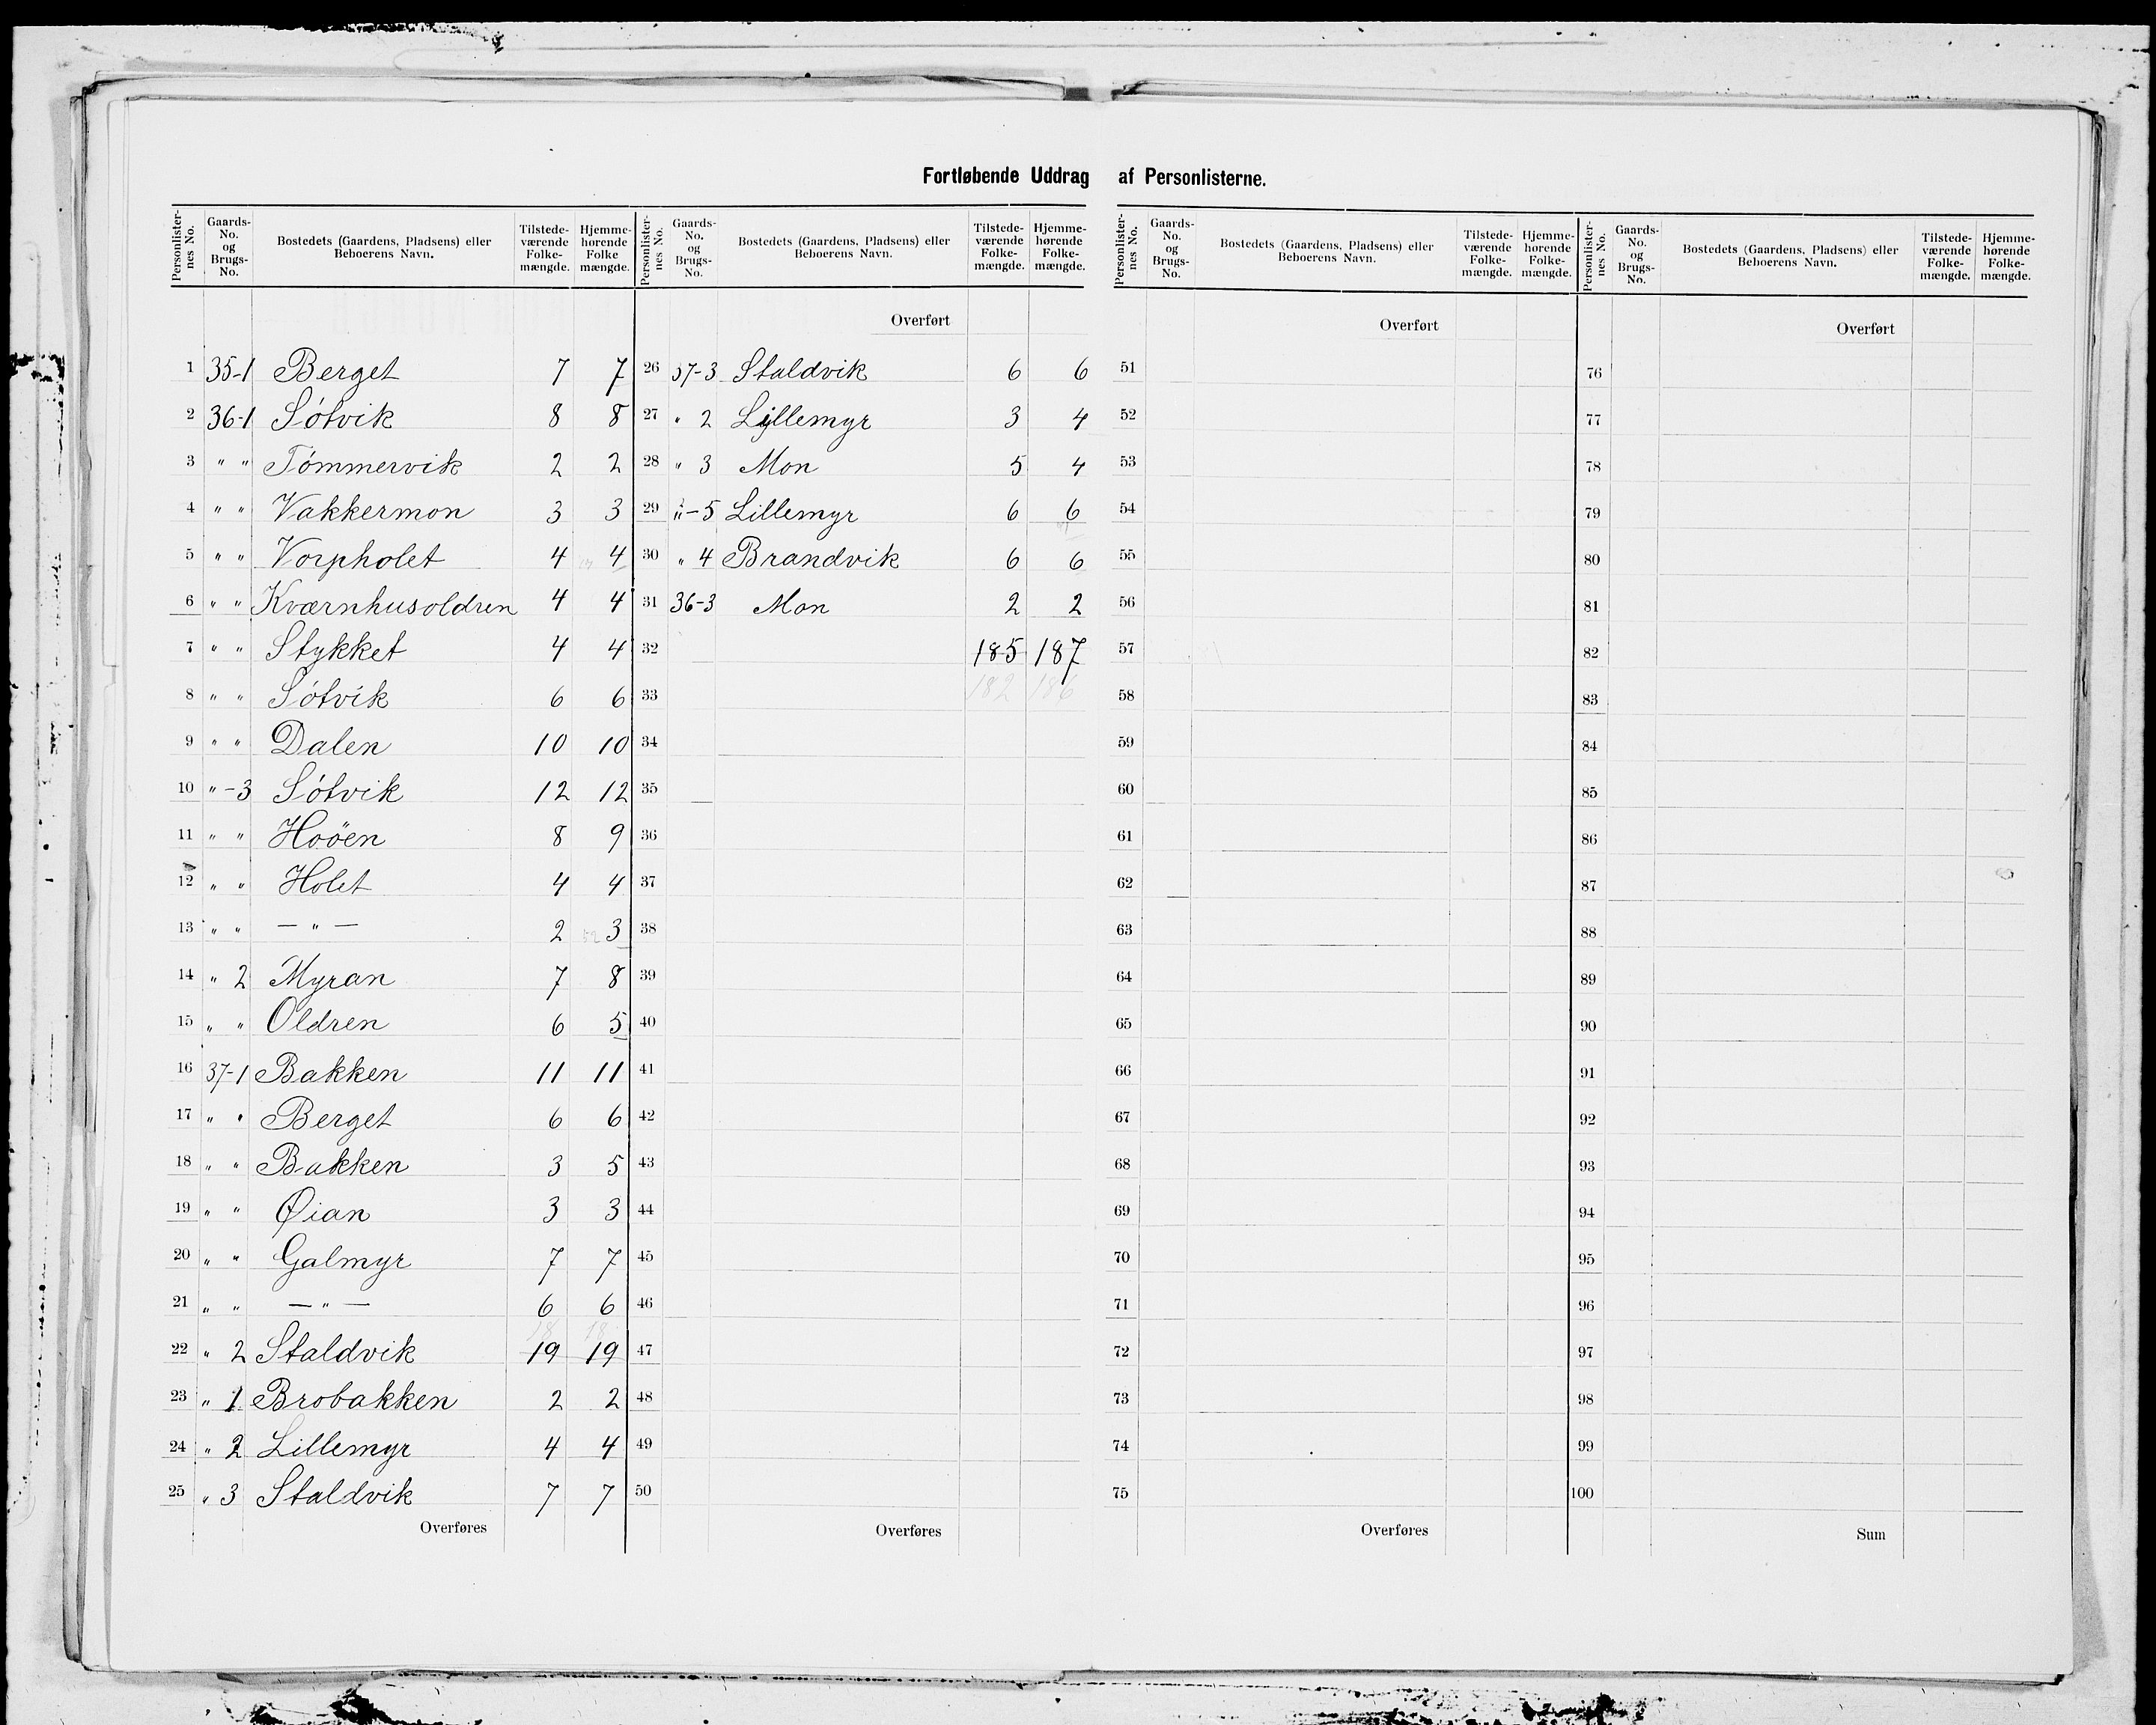 Fortløbende Uddrag af Personlisterne.
Personlister-nes No. Gaards-No. og Brugs-No. Bostedets (Gaardens, Pladsens) eller Beboerens Navn. Tilstede-værende Folke-mængde. Hjemme-hørende Folke mængde.
1 35-1 Berget 7 7
2 36-1 Sótvik 8 8
3 " " Tómmervik 2 2
4 " " Vakkermon 3 3
5 " " Vorpholet 4 4
6 " " Kværnhusoldren 4 4
7 " " Stykket 4 4
8 " " Sótvik 6 6
9 " " Dalen 10 10
10 " -3 Sótvik 12 12
11 " " Hoöen 8 9
12 " " Holet 4 4
13 " " — " — 2 3
14 " 2 Myran 7 8
15 " " Oldren 6 5
16 37-1 Bakken 11 11
17 " " Berget 6 6
18 " " Bakken 3 5
19 " " Øian 3 3
20 " " Galmyr 7 7
21 " " — " — 6 6
18 18
22 " 2 Staldvik 19 19
23 " 1 Brobakken 2 2
24 " 2 Lillemyr 4 4
25 " 3 Staldvik 7 7
Overføres
Personlister-nes No. Gaards-No. og Brugs-No. Bostedets (Gaardens, Pladsens) eller Beboerens Navn. Tilstede-værende Folke-mængde. Hjemme-hørende Folke-mængde.
Overført
26 37-3 Staldvik 6 6
27 " 2 Lillemyr 3 4
28 " 3 Mon 5 4
29 " -5 Lillemyr 6 6
30 " 4 Brandvik 6 6
31 36-3 Mon 2 2
32 185 187
33 182 186
34
35
36
37
38
39
40
41
42
43
44
45
46
47
48
49
50
Overføres
Personlister-nes No. Gaards-No. og Brugs-No. Bostedets (Gaardens, Pladsens) eller Beboerens Navn. Tilstede-værende Folke-mængde. Hjemme-hørende Folke-mængde.
Overført
51
52
53
54
55
56
57
58
59
60
61
62
63
64
65
66
67
68
69
70
71
72
73
74
75
Overføres
Personlister-nes No. Gaards-No. og Brugs-No. Bostedets (Gaardens, Pladsens) eller Beboerens Navn. Tilstede-værende Folke-mængde. Hjemme-hørende Folke-mængde.
Overført
76
77
78
79
80
81
82
83
84
85
86
87
88
89
90
91
92
93
94
95
96
97
98
99
100
Sum